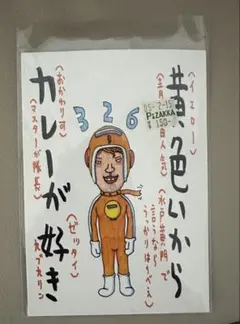 黄色いから
(イエロー)
(全員白人気)
(水戸黄門で
言うなれば
うっかりはちべえ)
05-2-15
PAZAKKA
150
326
カレーが好き
(おかわり可)
(マスターが隊長)
(ゼッタイ)